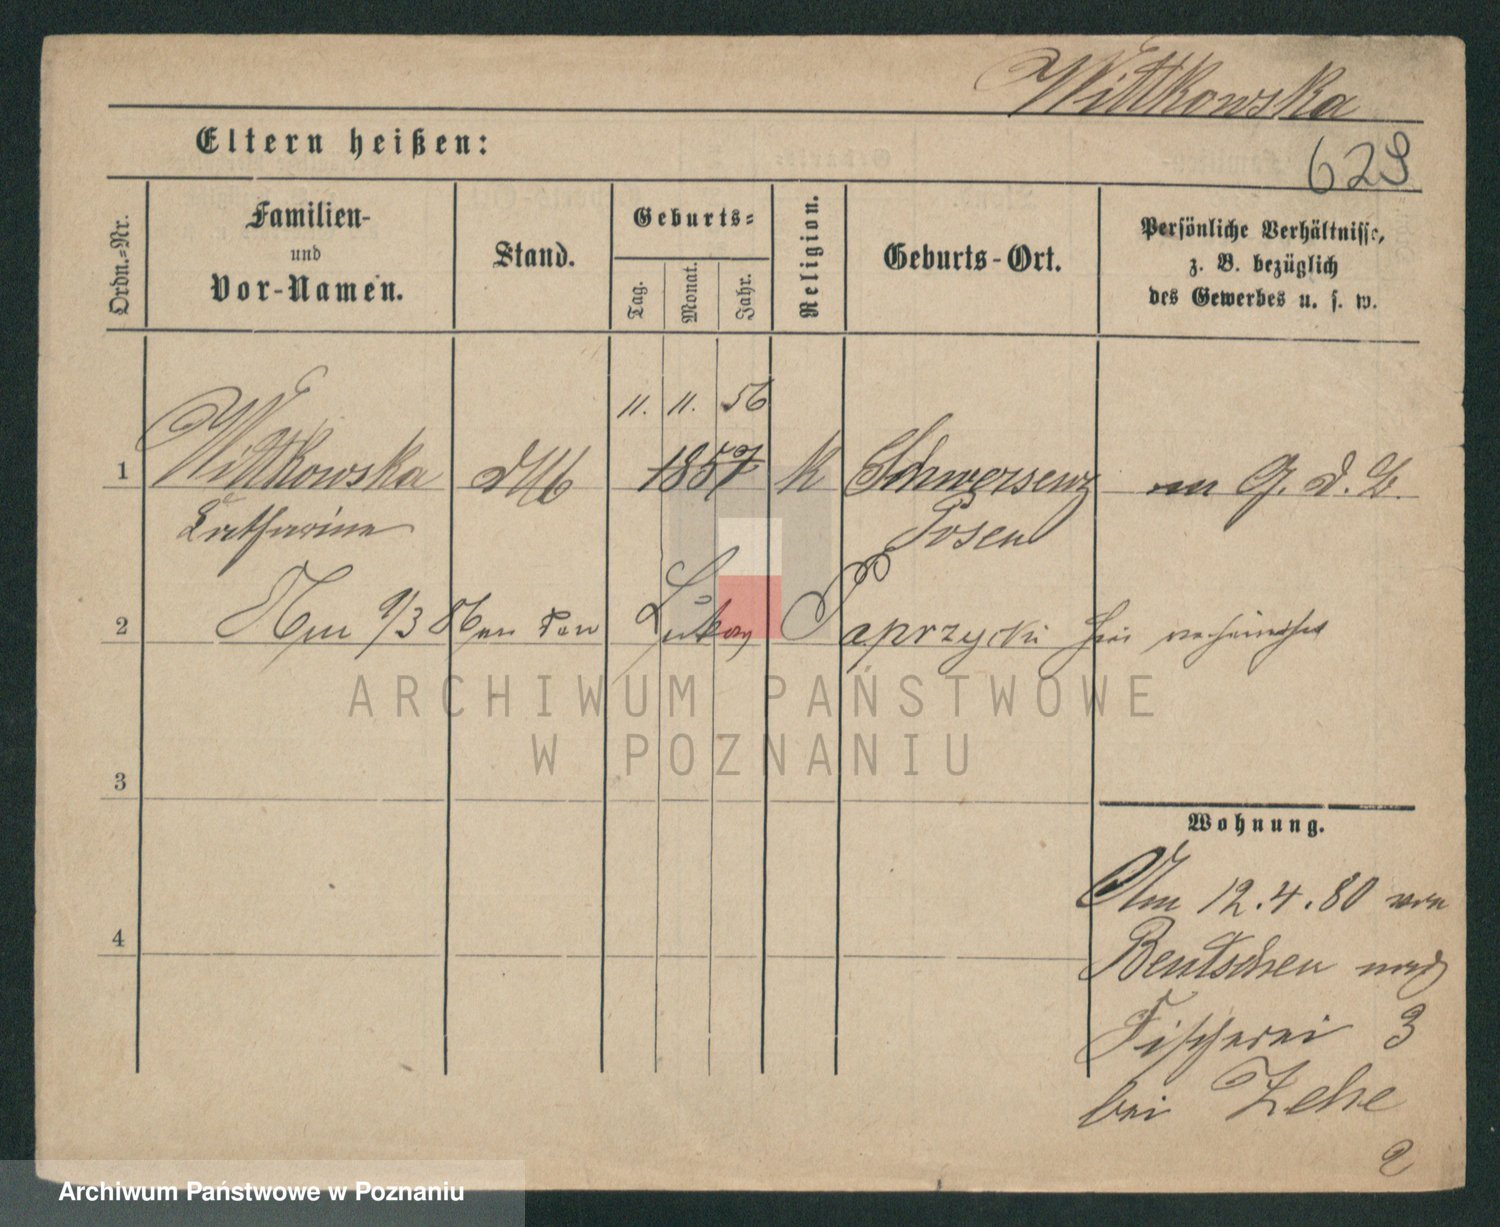 Wittkowska
Eltern heißen:
629
Ordn.=Nr.
Familien-
und
Vor-Namen.
Stand.
Geburts=
Tag.
Monat.
Jahr.
Religion.
Geburts-Ort.
Persönliche Verhältnisse,
z. B. bezüglich
des Gewerbes u. s. w.
11. 11. 56
1 Wittkowska 1857 k Schwersenz
Catharine Posen
2 Am 9/3 86 den Lukas Paprzycki hier verheirathet
ARCHIWUM PAŃSTWOWE
W POZNANIU
3
Wohnung.
Am 12.4.80 von
4
Bentschen nach
Fischerei 3
bei Zehe
2
Archiwum Państwowe w Poznaniu